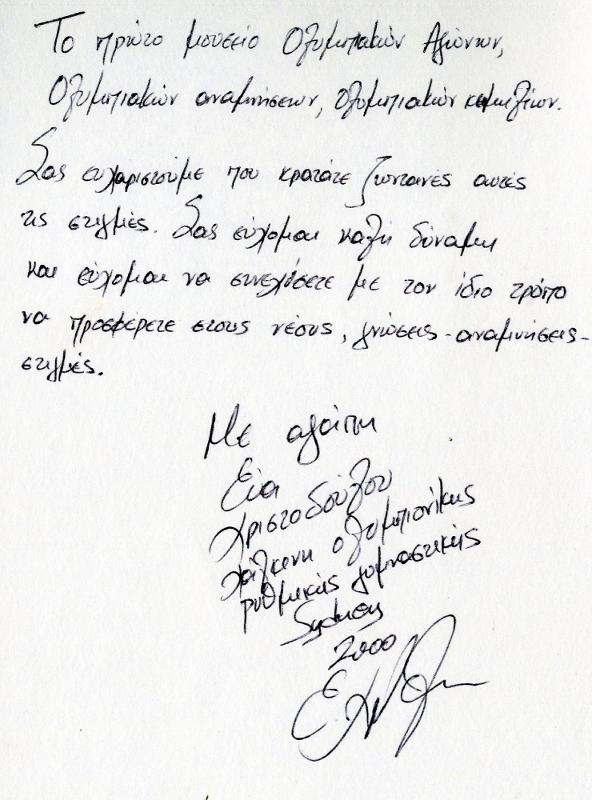 Το πρώτο μουσείο Ολυμπιακών Αγώνων,
Ολυμπιακών αναμνήσεων, Ολυμπιακών κειμηλίων.
Σας ευχαριστούμε που κρατάτε ζωντανές αυτές
τις στιγμές. Σας εύχομαι καλή δύναμη
και εύχομαι να συνεχίσετε με τον ίδιο τρόπο
να προσφέρετε στους νέους, γνώσεις - αναμνήσεις -
στιγμές.
Με αγάπη
Εύα
Χριστοδούλου
χάλκινη ολυμπιονίκης
ρυθμικής γυμναστικής
Sydney
2000